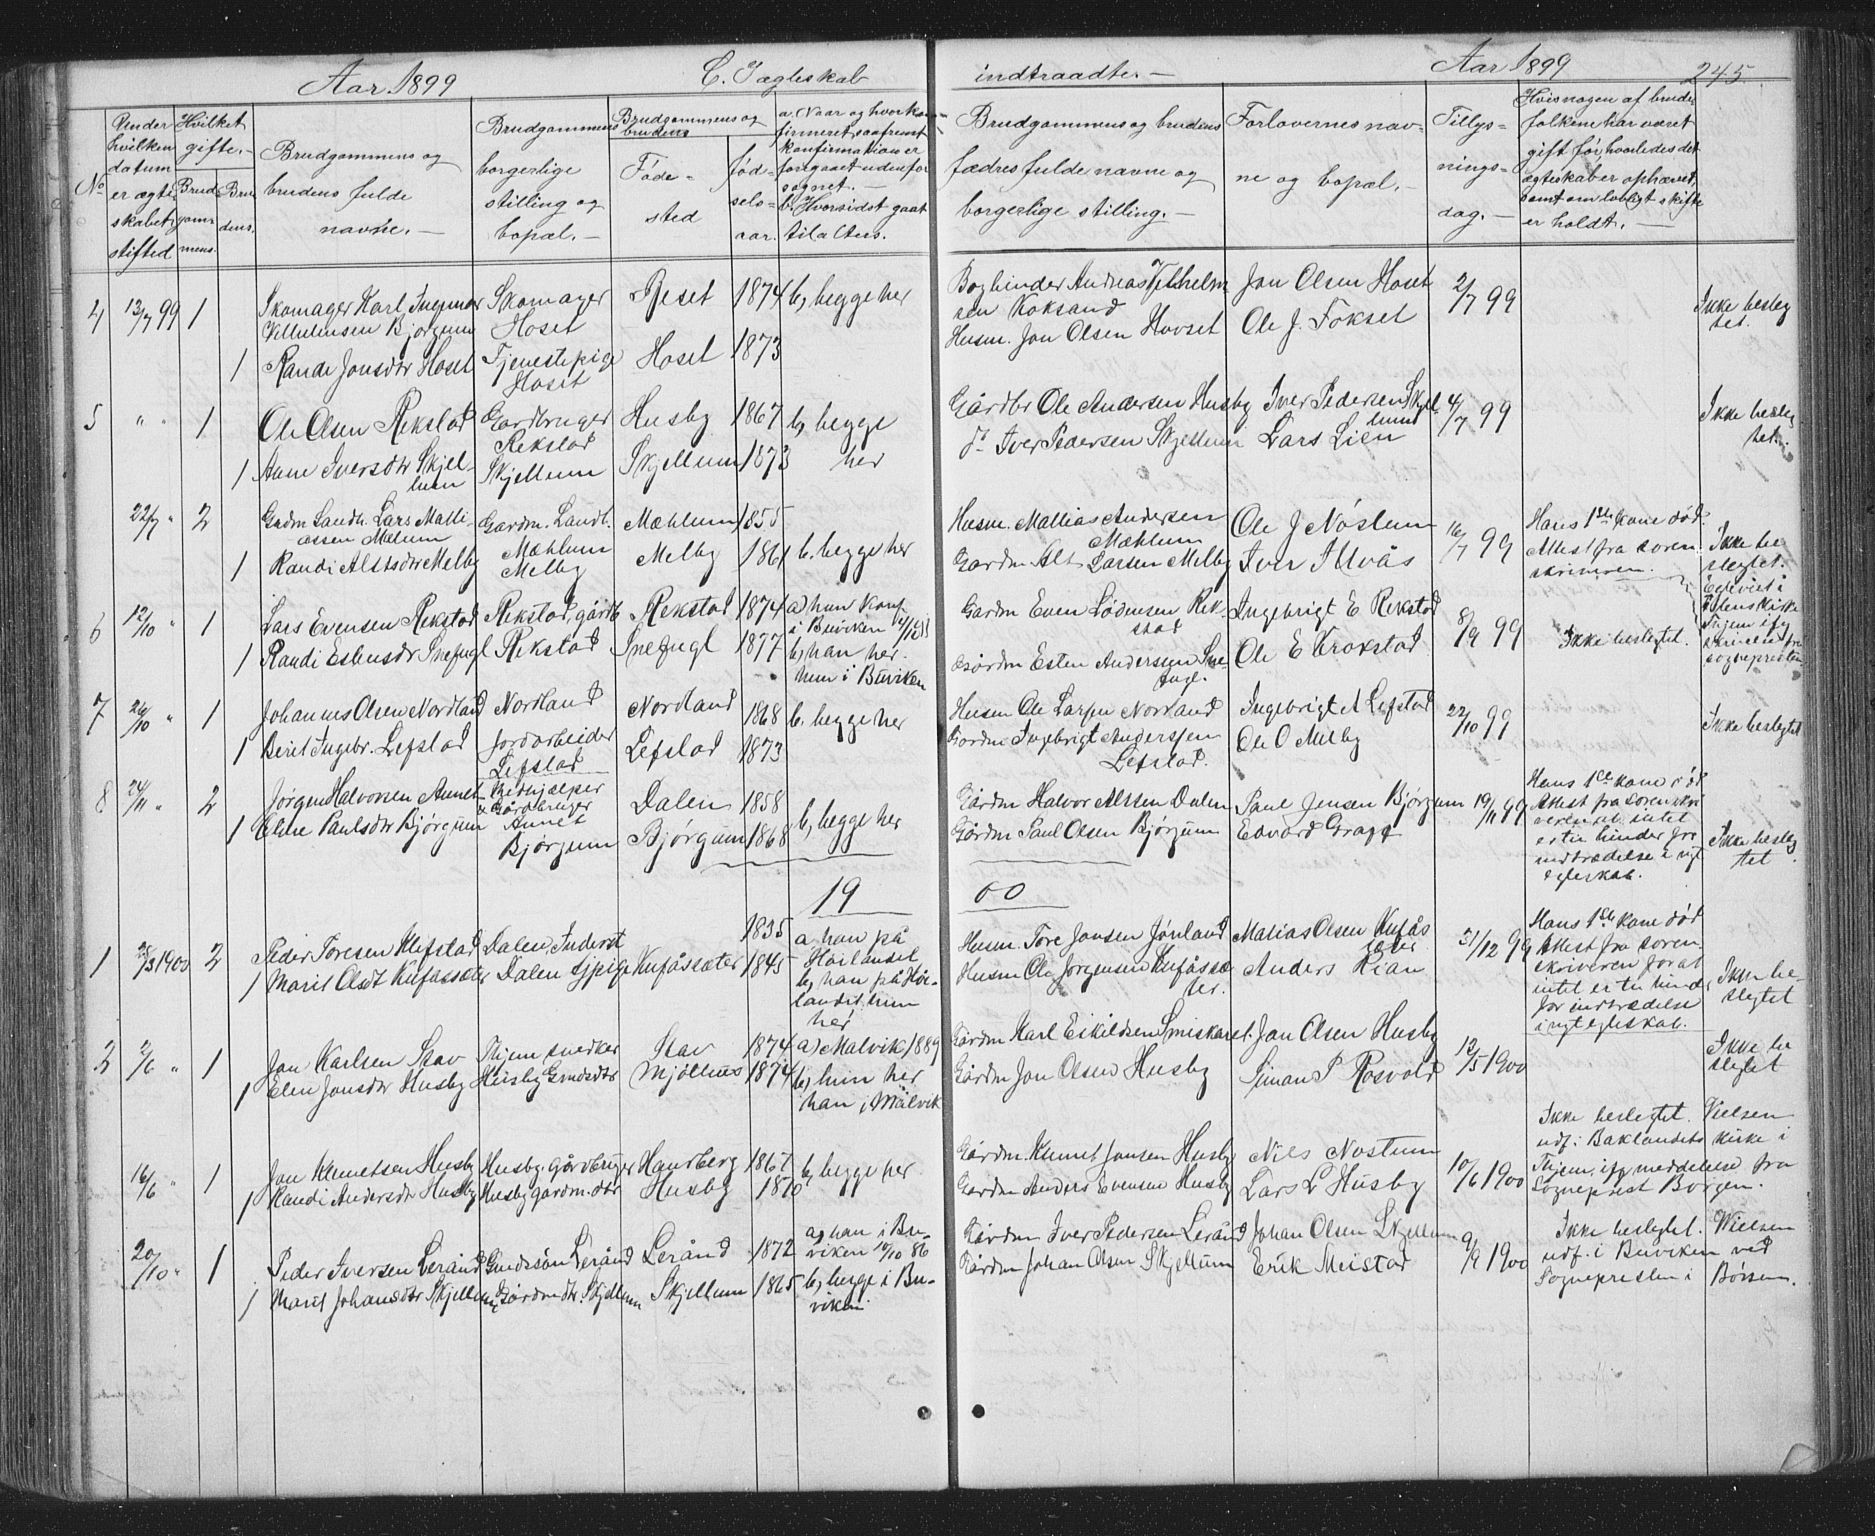 Aar 1899
C. Ægteskab
indtraadte.—
Aar 1899
245.
No
Under hvilken datum er ægteskabet stiftet
Hvilket gifte.—
Brudgommens.
Brudens.
Brudgommens og brudens fulde navne.—
Brudgommens borgerlige stilling og bopæl.—
Brudgommens og brudens
Føde-sted
fødselsaar.
a. Naar og hvor konfirmeret, saafremt konfirmationen er foregaaet udenfor sognet.—
b. Hvor sidst gaat til alters.
Brudgommens og brudens fædres fulde navne og borgerlige stilling.—
Forlovernes navne og bopæl.—
Tillysningsdag.—
Hvis nogen af brudefolkene har været gift før, hvorledes det ægteskab er ophævet, samt om lovligt skifte er holdt.—
4 13/7 99 1 Skomager Karl Ingmar Vilhelmsen Bjørgum Skomager Hoset 1874 b, begge her
Bogbinder Andreas Vilhelmsen Koksand Jon Olsen Hoset 2/7 99 Ikke beslegtet.
1 Randi Jonsdtr Hoset Tjenestepige Hoset Hoset 1873
Husm. Jon Olsen Hovset Ole J. Fokset
5 " " 1 Ole Olsen Rekstad Gardbruger Rekstad Husby 1867 b, begge her
Gårdbr Ole Andersen Husby Iver Pedersen Skjellum 4/7 99 Ikke beslegtet.
1 Anne Iversdtr Skjellum Skjellum Skjellum 1873
do Iver Pedersen Skjellum Lars Lien
22/7 " 2 Gadm Landh. Lars Mattiassen Mælum Gardm. Landh. Mæhlum Mæhlum 1855
Husm. Mattias Andersen Mæhlum Ole J Nøstum 16/7 99 Hans 1ste kone død. Attest fra sorenskriveren. Ikke beslegtet.
1 Randi Alstdtr Melby Melby Melby 1861 b. begge her
Gardm Alt Larsen Melby Iver Ilvås
6 12/10 " 1 Lars Evensen Rekstad Rekstad, gårdb Rekstad 1874 a) hun konf i Buviken
Gardm Even Rekstad Ingebrigt E Rekstad 8/9 99 Ikke beslegtet.
1 Randi Estensdr Snefugl Rekstad Snefugl 1877 b, han her. hun i Buviken
Gårdm Esten Andersen Snefugl. Ole E Krokstad
7 26/10 " 1 Johannes Olsen Nordland Nordland Nordland 1868 b. begge her
Husm Ole Larsen Nordland Ingebrigt A Lefstad 22/10 99 Ikke beslegtet
1 Beret Ingebr. Lefstad Jordarbeider Lefstad Lefstad 1873
Gardm Ingebrigt Anderssen Lefstad. Ole O Melby
8 24/11 " 2 Jørgen Halvorsen Annet Gårdbruger Annet Dalen 1858 b, begge her
Gårdm Halvor Alssen Dalen Paul Jensen Bjørgum 19/11 99 Hans 1ste kone død Attest fra sorenskriveren at intet er til hinder for indtrædelse i nyt egteskab. Ikke beslegtet
1 Eline Paulsdtr Bjørgum Bjørgum Bjørgum 1868
Gårdm Paul Olsen Bjørgum Edvard Graff
19
00
1 25/3 1900 2 Peder Toresen Klefstad Dalen, Inderst 1835 a, han på Høilandet
Husm. Tore Jonsen Jønland Matias Olsen Kufåssæter 31/12 99 Hans 1ste kone død Attest fra sorenskriveren for at intet er til hinder for indtrædelse i nyt egteskab. Ikke beslegtet
1 Marit Olsdt Kufaassæter Dalen Tjpige Kufåssæter 1845 b, han på Høilandet. hun her
Husm Ole Jørgensen Kufåssæter. Anders Rian
2 2/6 " 1 Jon Karlsen Stav Thjem snedker Stav 1874 a) Malvik 1889
Gårdm Karl Eskildsen Smiskaret. Jon Olsen Husby 12/5 1900 Ikke beslegtet
1 Elen Jonsdtr Husby Husby Gmdsdtr Mjølhus 1874 b, hun her han i Malvik
Gårdm Jon Olsen Husby Simon P Rosvold
16/6 " 1 Jon Kunetsen Husby Husby, Gårdbruger Hansberg 1867 b, begge her
Gårdm. Kunet Jonsen Husby Nils Nostum 10/6 1900 Ikke beslegtet. Vielsen udf. i Baklandets kirke i Thjem, ifg meddelelse fra Sogneprest Borgen.
1 Randi Andersdtr Husby Husby gardm.dtr Husby 1870
Gårdm Anders Evensen Husby Lars L Husby
20/10 " 1 Peder Iversen Lerånd Gmdssøn Lerånd Lerånd 1872 a, han i Buviken 10/10 86
Gårdm Iver Pedersen Lerånd Johan Olsen Skjellum 9/9 1900 Ikke beslegtet. Vielsen udf. i Buviken ved Sognepresten i Børsen.
1 Marit Johansdtr Skjellum Gårdmdtr. Skjellum Skjellum 1865 b, begge i Buviken.
Gårdm Johan Olsen Skjellum Erik Meistad